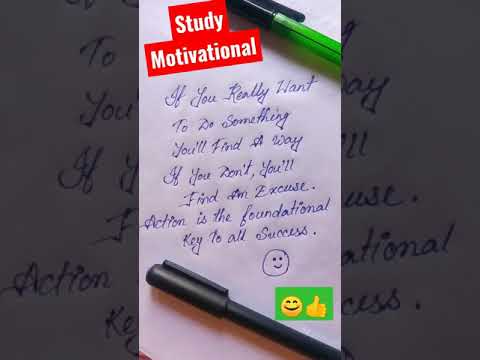 Study
Motivational
If You Really Want
To Do Something
You'll Find A Way
If You Don't, You'll
Find An Excuse.
Action is the foundational
Key To all Success.